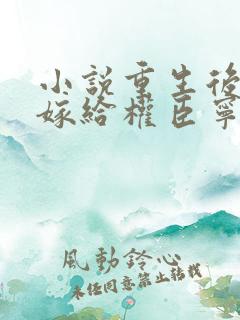 小說重生後
嫁給權臣寧
風動鈴心
未經同意禁止轉載